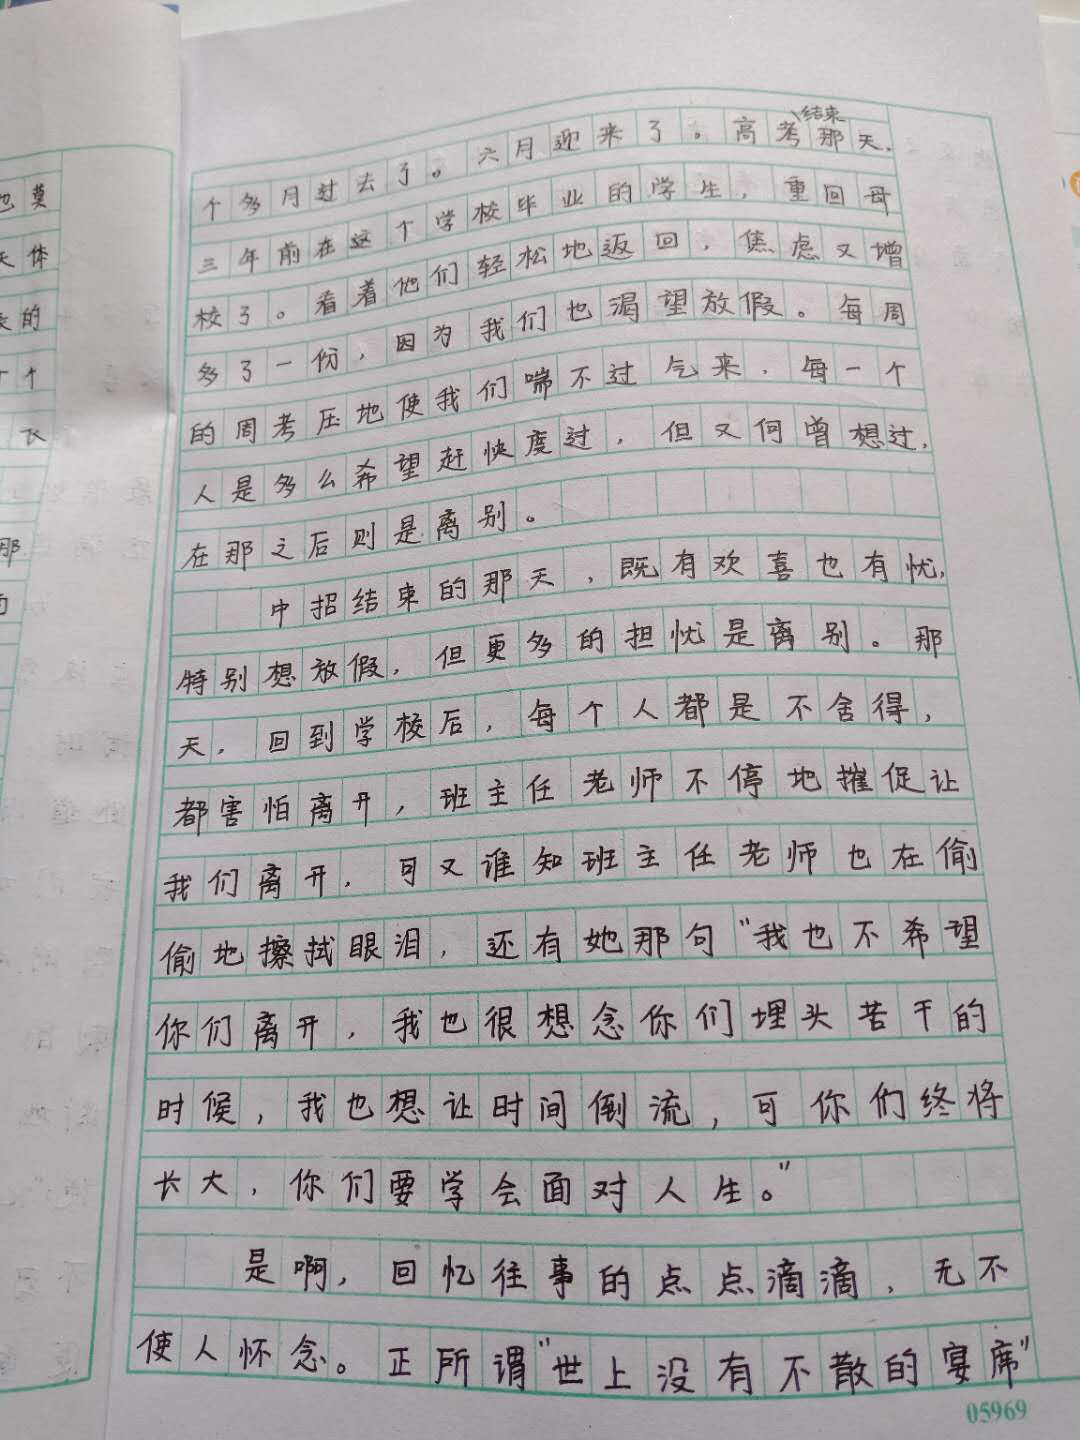 也莫
天体
的
个
那
结束
个多月过去了。六月迎来了。高考那天，
三年前在这个学校毕业的学生，重回母
校了。看着他们轻松地返回，焦虑又增
多了一份，因为我们也渴望放假。每周
的周考压地使我们喘不过气来，每一个
人是多么希望赶快度过，但又何曾想过，
在那之后则是离别。
中招结束的那天，既有欢喜也有忧，
特别想放假，但更多的担忧是离别。那
天，回到学校后，每个人都是不舍得，
都害怕离开，班主任老师不停地摧促让
我们离开，可又谁知班主任老师也在偷
偷地擦拭眼泪，还有她那句“我也不希望
你们离开，我也很想念你们埋头苦干的
时候，我也想让时间倒流，可你们终将
长大，你们要学会面对人生。”
是啊，回忆往事的点点滴滴，无不
使人怀念。正所谓“世上没有不散的宴席”
05969